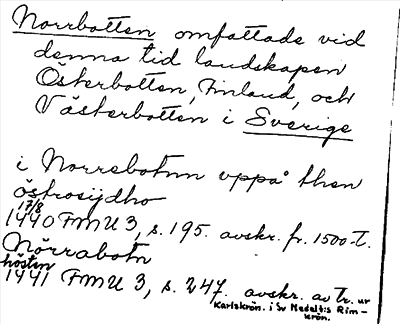 Norrbotten omfattade vid
denna tid landskapen
Österbotten, Finland, och
Västerbotten i Sverige
i Norrebotnn vppå then
östrosijdho
17/8
1440 FMU 3, s. 195. avskr. fr. 1500-t.
Norrabotn
hösten
1441 FMU 3, s. 247. avskr. av tr. ur
Karlskrön. i Sv Medelt:s Rim-
krön.